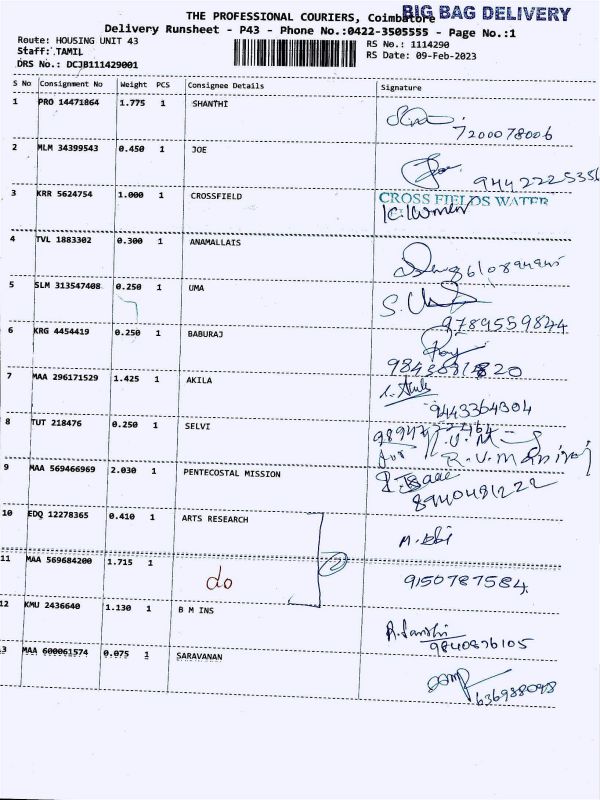 BIG BAG DELIVERY
THE PROFESSIONAL COURIERS, Coimbatore
Delivery Runsheet - P43 - Phone No.:0422-3505555 - Page No.:1
Route: HOUSING UNIT 43 RS No.: 1114290
Staff: TAMIL RS Date: 09-Feb-2023
DRS No.: DCJB111429001
S No Consignment No Weight PCS Consignee Details Signature
1 PRO 14471864 1.775 1 SHANTHI
7200078006
2 MLM 34399543 0.450 1 JOE
9442225356
3 KRR 5624754 1.000 1 CROSSFIELD CROSS FIELDS WATER
4 TVL 1883302 0.300 1 ANAMALLAIS
5 SLM 313547408 0.250 1 UMA
9789559844
6 KRG 4454419 0.250 1 BABURAJ
7 MAA 296171529 1.425 1 AKILA
9443364304
8 TUT 218476 0.250 1 SELVI
for
9 MAA 569466969 2.030 1 PENTECOSTAL MISSION
8940481222
10 EDQ 12278365 0.410 1 ARTS RESEARCH
11 MAA 569684200 1.715 1 do 9150787584.
12 KMU 2436640 1.130 1 B M INS
9840876105
3 MAA 600061574 0.075 1 SARAVANAN